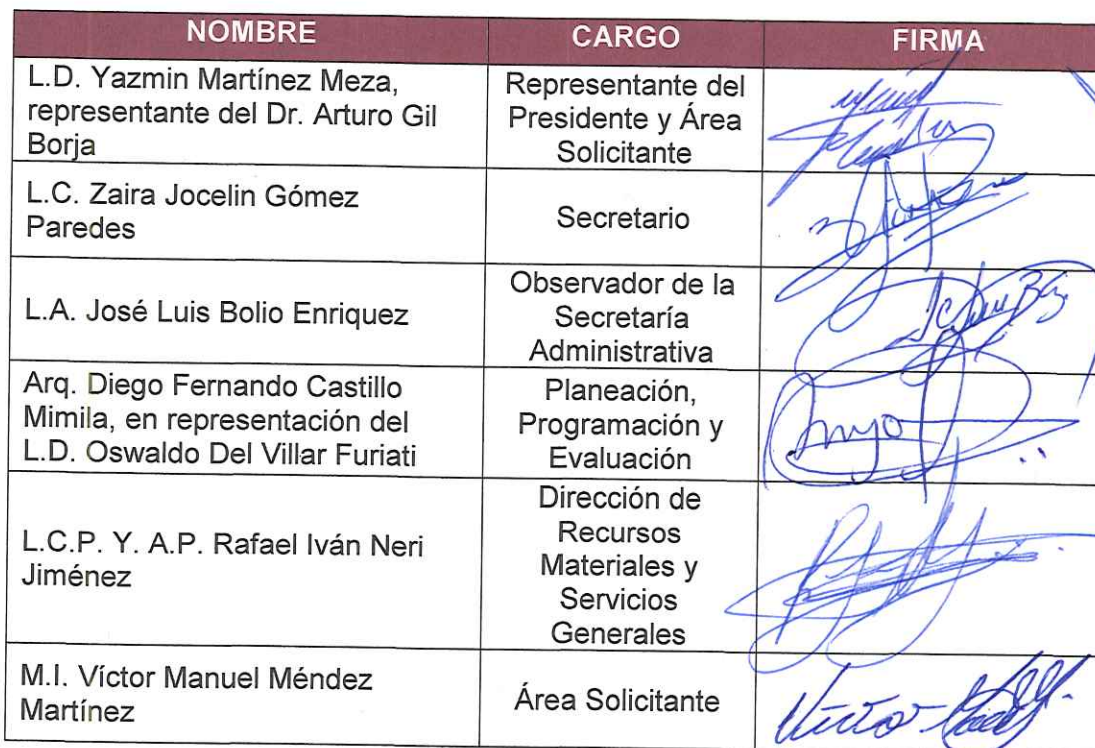 NOMBRE CARGO FIRMA
L.D. Yazmin Martínez Meza,
representante del Dr. Arturo Gil
Borja
Representante del
Presidente y Área
Solicitante
L.C. Zaira Jocelin Gómez
Paredes
Secretario
L.A. José Luis Bolio Enriquez
Observador de la
Secretaría
Administrativa
Arq. Diego Fernando Castillo
Mimila, en representación del
L.D. Oswaldo Del Villar Furiati
Planeación,
Programación y
Evaluación
L.C.P. Y. A.P. Rafael Iván Neri
Jiménez
Dirección de
Recursos
Materiales y
Servicios
Generales
M.I. Víctor Manuel Méndez
Martínez
Área Solicitante